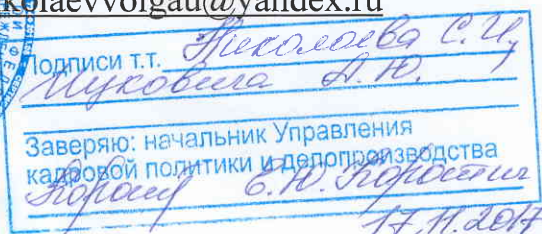 kolaevvolgau@yandex.ru
Подписи т.т. Николаева С.И,
Жуковина А.Ю.
Заверяю: начальник Управления
кадровой политики и делопроизводства
Е.Ю. Коростин
17.11.2017